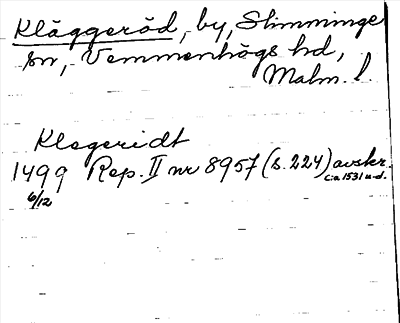 Kläggeröd, by, Slimminge
sn, Vemmenhögs hd,
Malm. l.
Klegeridt
1499 Rep. II nr 8957 (s. 224) avskr.
6/12 c:a 1531 u.d.